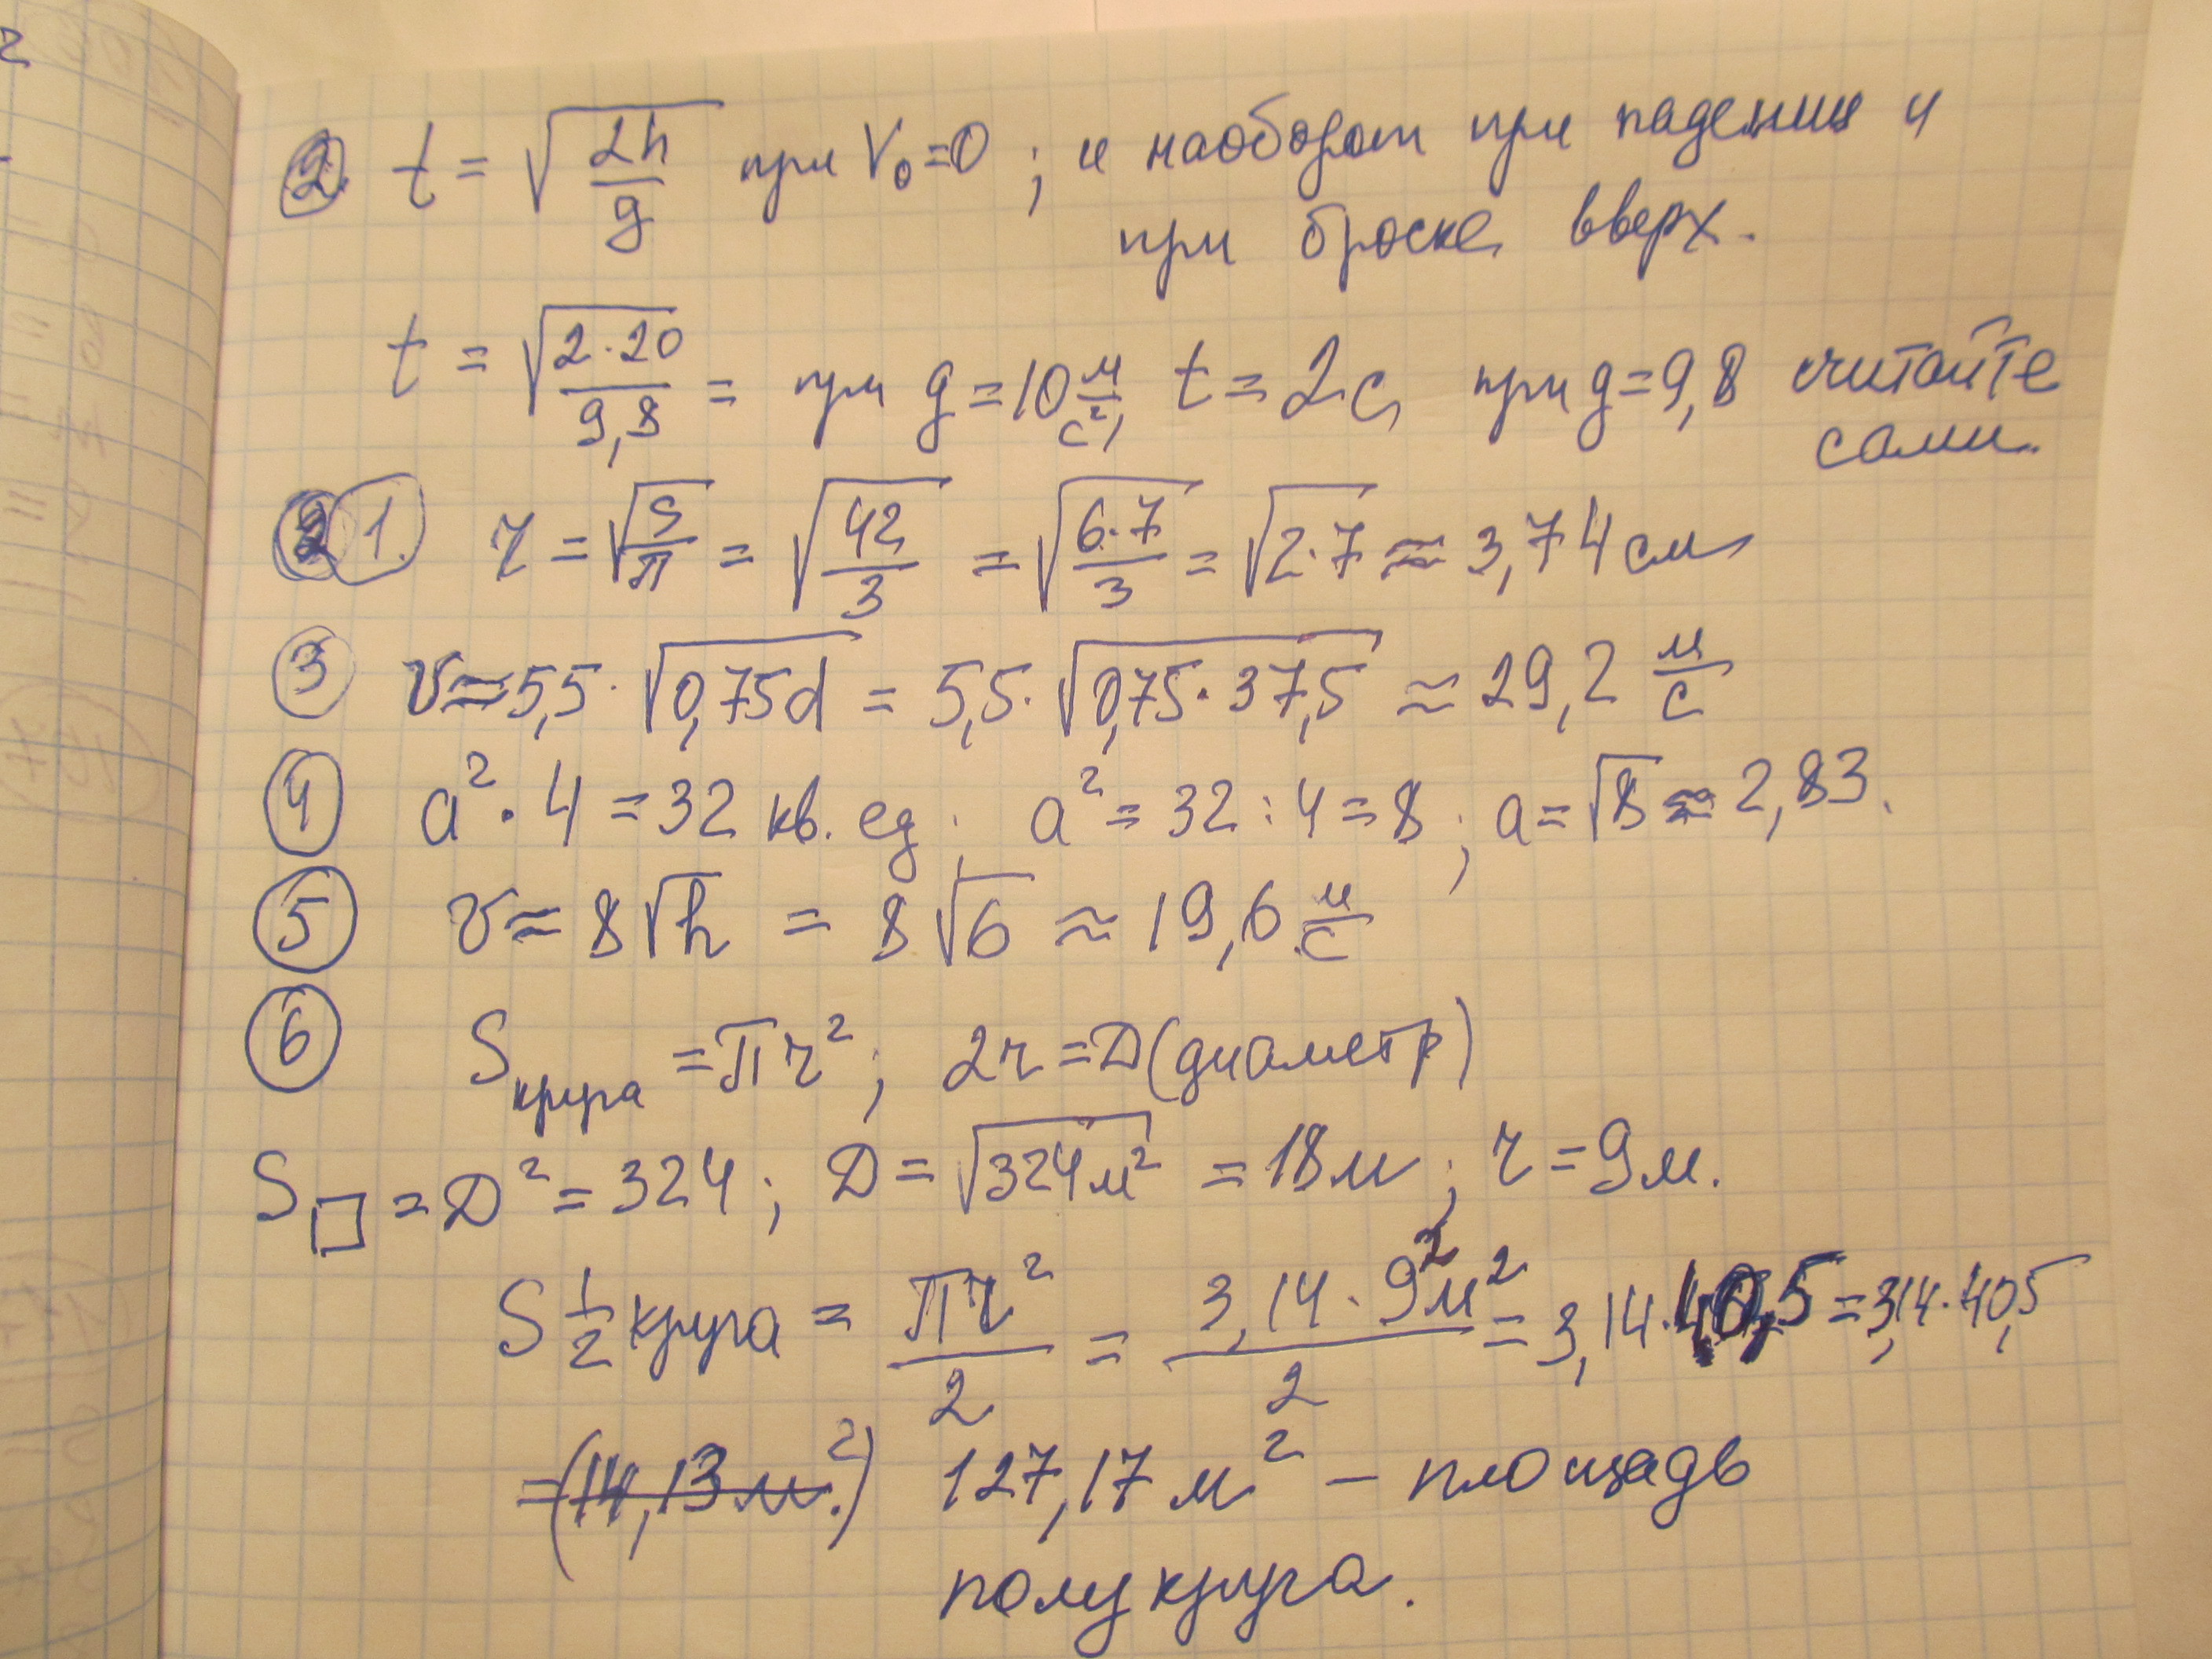 2. t = √(2h/g) при V₀=0 ; и наоборот при падении и
при броске вверх.
t = √(2·20/9,8) = при g=10 м/с², t=2с, при g=9,8 считайте
сами.
1. r = √(S/π) = √(42/3) = √(6·7/3) = √(2·7) ≈ 3,74 см
3 v ≈ 5,5·√(0,75d) = 5,5·√(0,75·37,5) ≈ 29,2 м/с
4 a²·4 = 32 кв. ед ; a² = 32:4 = 8 ; a = √8 ≈ 2,83.
5 v ≈ 8√h = 8√6 ≈ 19,6 м/с
6 S круга = πr² ; 2r = D (диаметр)
S□ = D² = 324 ; D = √(324м²) = 18м ; r = 9м.
S 1/2 круга = πr²/2 = 3,14·9²м²/2 = 3,14·40,5 = 3,14·40,5
=(14,13 м².) 127,17 м² – площадь
полукруга.